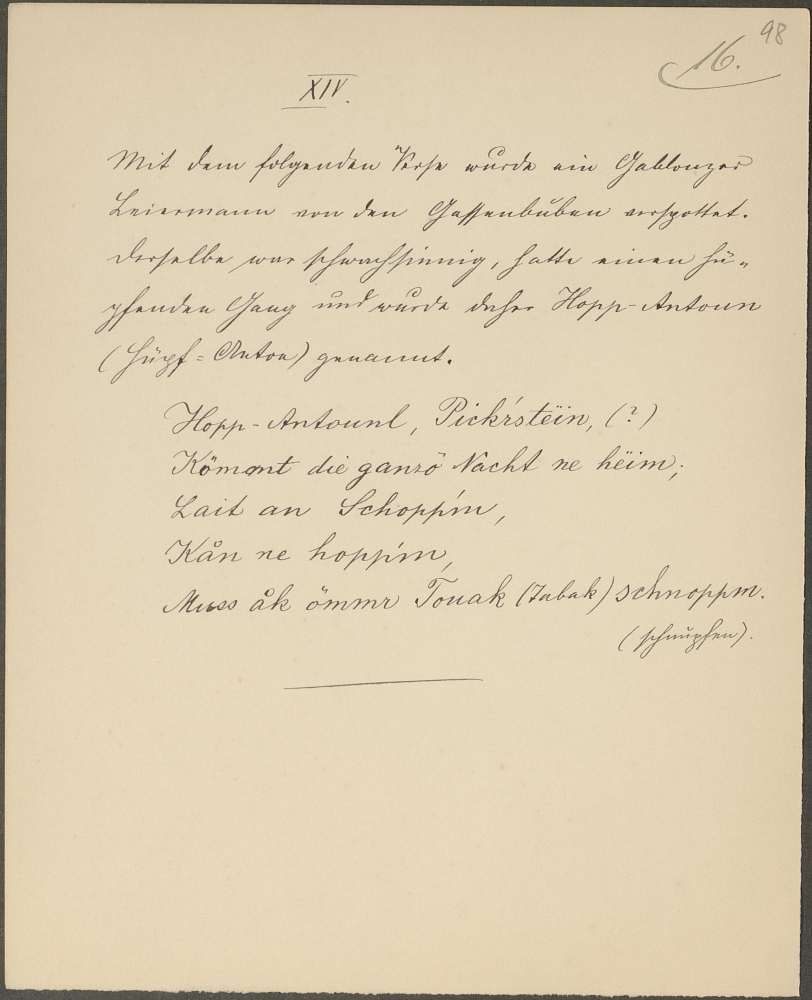 98
16.
XIV.
Mit dem folgenden Verse wurde ein Gablonzer
Leiermann von den Gassenbuben verspottet.
Derselbe war schwachsinnig, hatte einen hü-
pfenden Gang und wurde daher Hopp-Antoun
(Hüpf-Anton) genannt.
Hopp-Antounl, Pick'rstëin, (?)
Kömmt die ganzö Nacht ne hëim;
Lait an Schopp'm,
Kån ne hopp'm,
Muss åk ömmr Touak (Tabak) schnoppm.
(schnupfen).